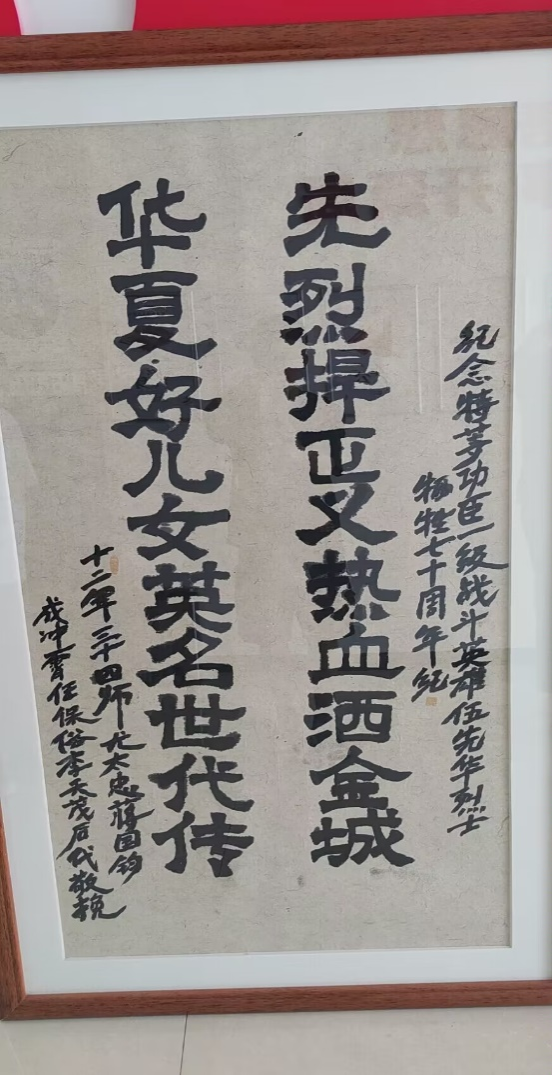 纪念特等功臣一级战斗英雄伍先华烈士
牺牲七十周年纪
先烈捍正义热血洒金城
华夏好儿女英名世代传
十二军三十四师尤太忠蒋国钧
成冲霄任保俗李天茂后代敬挽